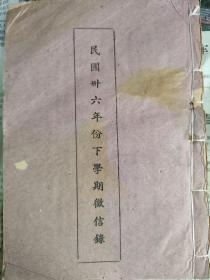 民國卅六年份下學期徵信錄